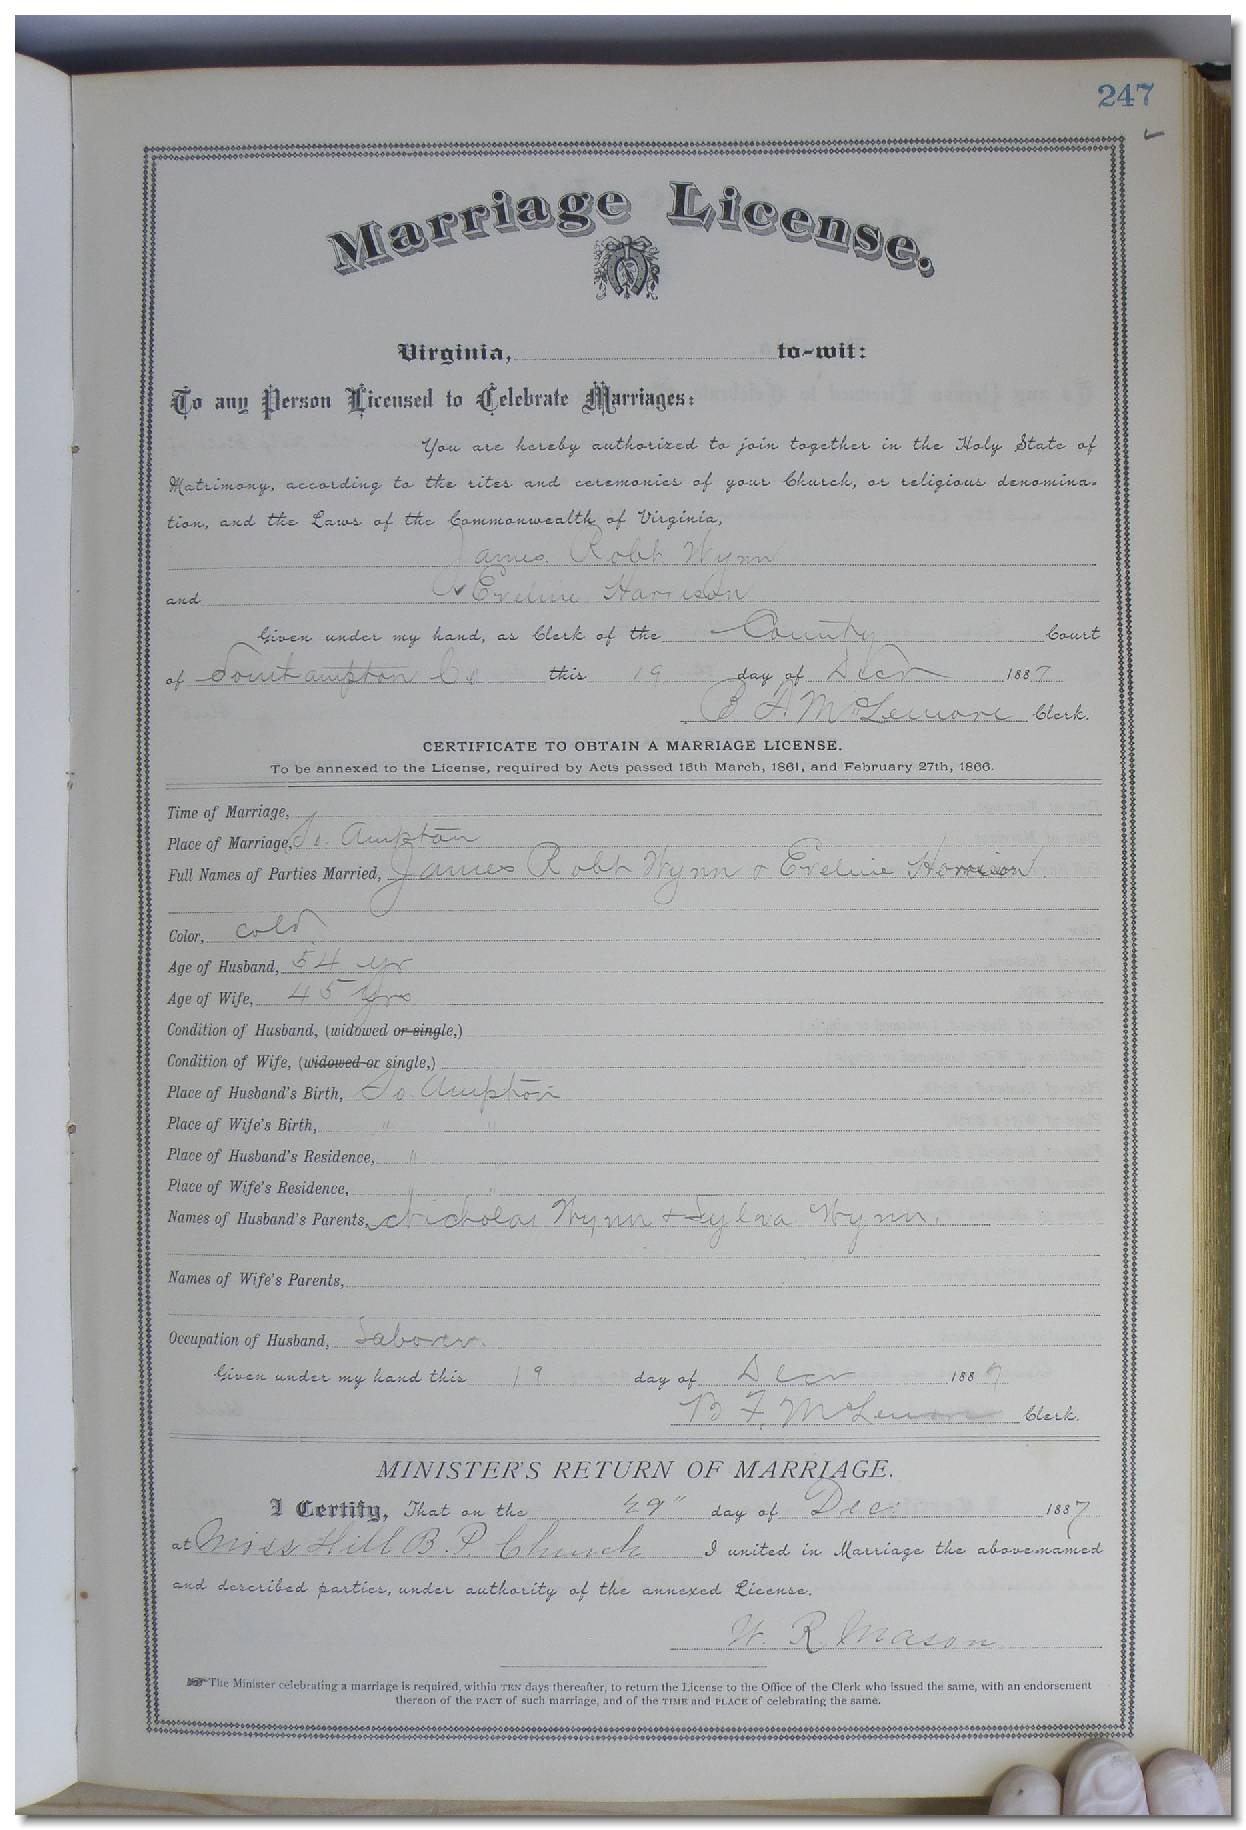 247
Marriage License.
Virginia, to-wit:
To any Person Licensed to Celebrate Marriages:
You are hereby authorized to join together in the Holy State of
Matrimony, according to the rites and ceremonies of your Church, or religious denomina-
tion, and the Laws of the Commonwealth of Virginia,
James Robt Wynn
and Eveline Harrison
Given under my hand, as Clerk of the County Court
of Southampton Co this 19 day of Decr 1887
B F McLemore Clerk.
CERTIFICATE TO OBTAIN A MARRIAGE LICENSE.
To be annexed to the License, required by Acts passed 15th March, 1861, and February 27th, 1866.
Time of Marriage,
Place of Marriage, So. Ampton
Full Names of Parties Married, James Robt Wynn & Eveline Harrison
Color, cold
Age of Husband, 54 yr
Age of Wife, 45 yrs
Condition of Husband, (widowed or single,)
Condition of Wife, (widowed or single,)
Place of Husband's Birth, So. Ampton
Place of Wife's Birth, " "
Place of Husband's Residence, "
Place of Wife's Residence, " "
Names of Husband's Parents, Nicholas Wynn & Sylva Wynn.
Names of Wife's Parents,
Occupation of Husband, Laborer.
Given under my hand this 19 day of Decr 1887
B F McLemore Clerk.
MINISTER'S RETURN OF MARRIAGE.
I Certify, That on the 29" day of Dec. 1887
at Miss Hill B. P. Church I united in Marriage the above-named
and described parties, under authority of the annexed License.
W. R. Mason
The Minister celebrating a marriage is required, within TEN days thereafter, to return the License to the Office of the Clerk who issued the same, with an endorsement
thereon of the FACT of such marriage, and of the TIME and PLACE of celebrating the same.